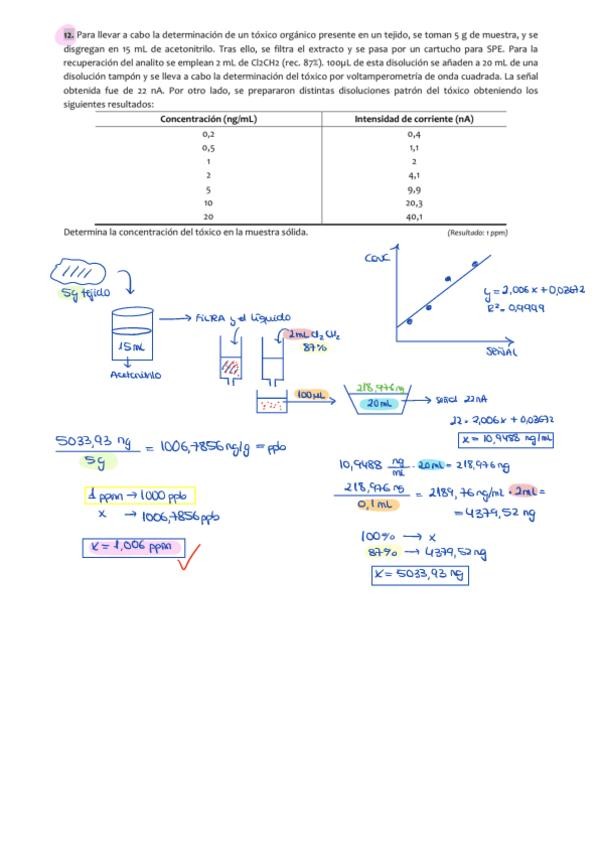 12. Para llevar a cabo la determinación de un tóxico orgánico presente en un tejido, se toman 5 g de muestra, y se
disgregan en 15 mL de acetonitrilo. Tras ello, se filtra el extracto y se pasa por un cartucho para SPE. Para la
recuperación del analito se emplean 2 mL de Cl2CH2 (rec. 87%). 100µL de esta disolución se añaden a 20 mL de una
disolución tampón y se lleva a cabo la determinación del tóxico por voltamperometría de onda cuadrada. La señal
obtenida fue de 22 nA. Por otro lado, se prepararon distintas disoluciones patrón del tóxico obteniendo los
siguientes resultados:
Concentración (ng/mL) Intensidad de corriente (nA)
0,2 0,4
0,5 1,1
1 2
2 4,1
5 9,9
10 20,3
20 40,1
Determina la concentración del tóxico en la muestra sólida. (Resultado: 1 ppm)
CONC
y = 2,006x + 0,03672
R² = 0,9999
SEÑAL
5g tejido
15 mL
Acetonitrilo
→ FILTRA y el líquido
2mL Cl₂CH₂
87%
100 µL
218,976 ng
20 mL
→ señal 22nA
22 = 2,006x + 0,03672
x = 10,9488 ng/mL
5033,93 ng / 5g = 1006,7856 ng/g = ppb
1 ppm → 1000 ppb
x → 1006,7856 ppb
x = 1,006 ppm
10,9488 ng/mL · 20mL = 218,976 ng
218,976 ng / 0,1 mL = 2189,76 ng/mL · 2mL =
= 4379,52 ng
100% → x
87% → 4379,52 ng
x = 5033,93 ng